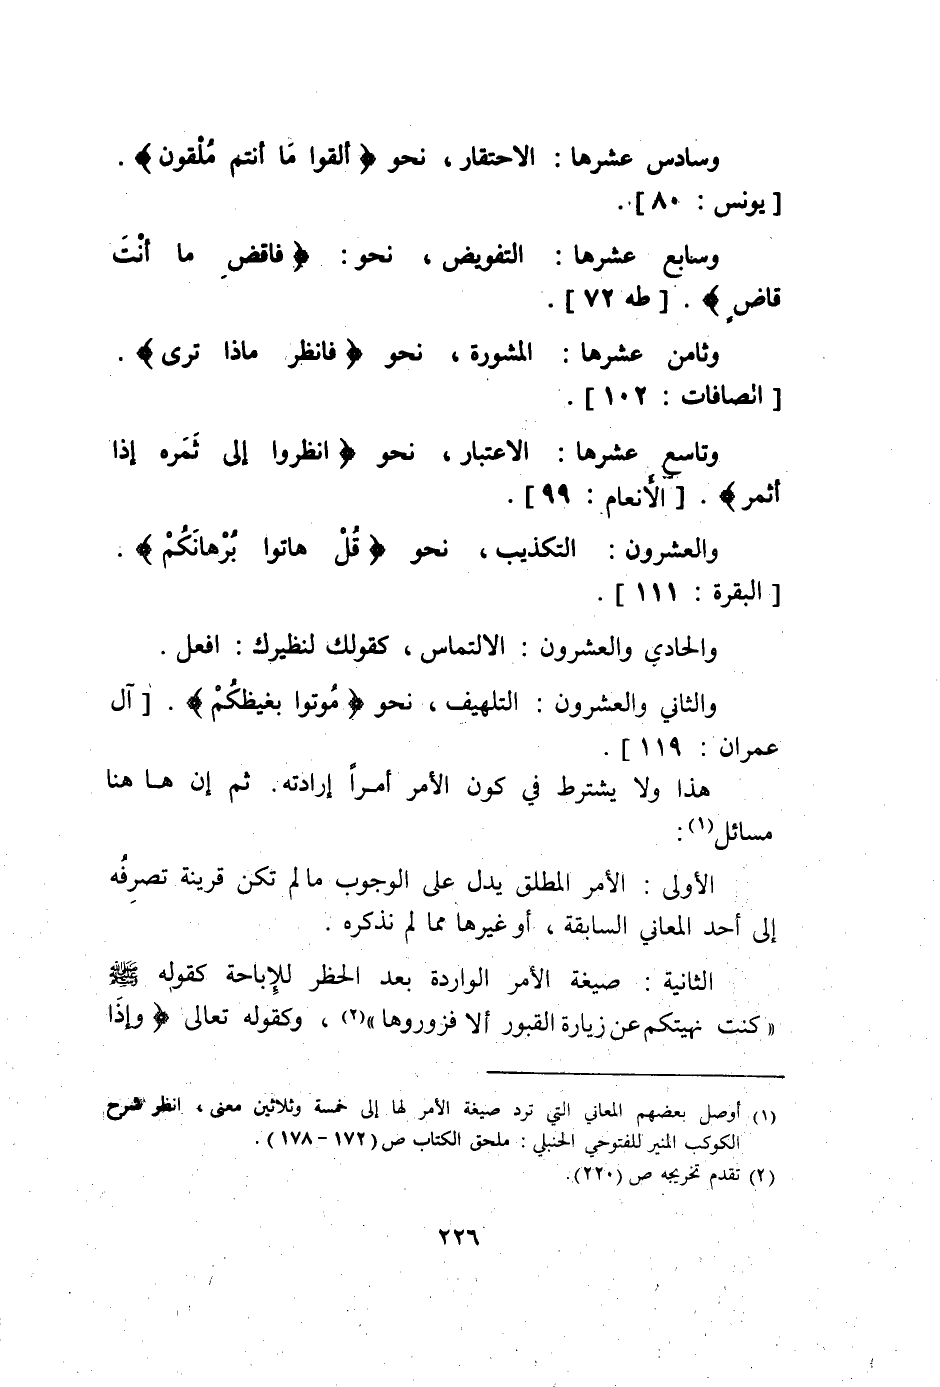 وسادس عشرها : الاحتقار ، نحو ﴿ ألقوا مَا أنتم مُلْقون ﴾ .
[ يونس : ٨٠ ] .
وسابع عشرها : التفويض ، نحو : ﴿ فاقضِ ما أنْتَ
قاضٍ ﴾ . [ طه ٧٢ ] .
وثامن عشرها : المشورة ، نحو ﴿ فانظر ماذا ترى ﴾ .
[ الصافات : ١٠٢ ] .
وتاسع عشرها : الاعتبار ، نحو ﴿ انظروا إلى ثَمَره إذا
أثمر ﴾ . [ الأنعام : ٩٩ ] .
والعشرون : التكذيب ، نحو ﴿ قُلْ هاتوا بُرْهانَكُمْ ﴾ .
[ البقرة : ١١١ ] .
والحادي والعشرون : الالتماس ، كقولك لنظيرك : افعل .
والثاني والعشرون : التلهيف ، نحو ﴿ مُوتوا بغيظكُمْ ﴾ . [ آل
عمران : ١١٩ ] .
هذا ولا يشترط في كون الأمر أمراً إرادته . ثم إن هـا هنا
مسائل(١) :
الأولى : الأمر المطلق يدل على الوجوب ما لم تكن قرينة تصرِفُه
إلى أحد المعاني السابقة ، أو غيرها مما لم نذكره .
الثانية : صيغة الأمر الواردة بعد الحظر للإباحة كقوله ﷺ
« كنت نهيتكم عن زيارة القبور ألا فزوروها »(٢) ، وكقوله تعالى ﴿ وإذَا
(١) أوصل بعضهم المعاني التي ترد صيغة الأمر لها إلى خمسة وثلاثين معنى ، انظر شرح
الكوكب المنير للفتوحي الحنبلي : ملحق الكتاب ص (١٧٢ - ١٧٨ ) .
(٢) تقدم تخريجه ص (٢٢٠).
٢٢٦